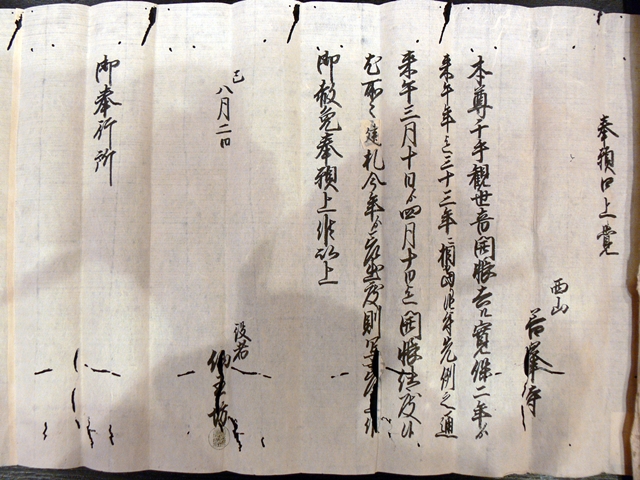 奉願口上覚
西山
善峯寺
本尊千手観世音開帳去ル寛保二年ゟ
来午年迄三十三年ニ相当候付先例之通
来午三月十日ゟ四月十日迄開帳仕度候
建札今年ゟ出置度則
御赦免奉願上候以上
巳
八月二日
役者
御奉行所